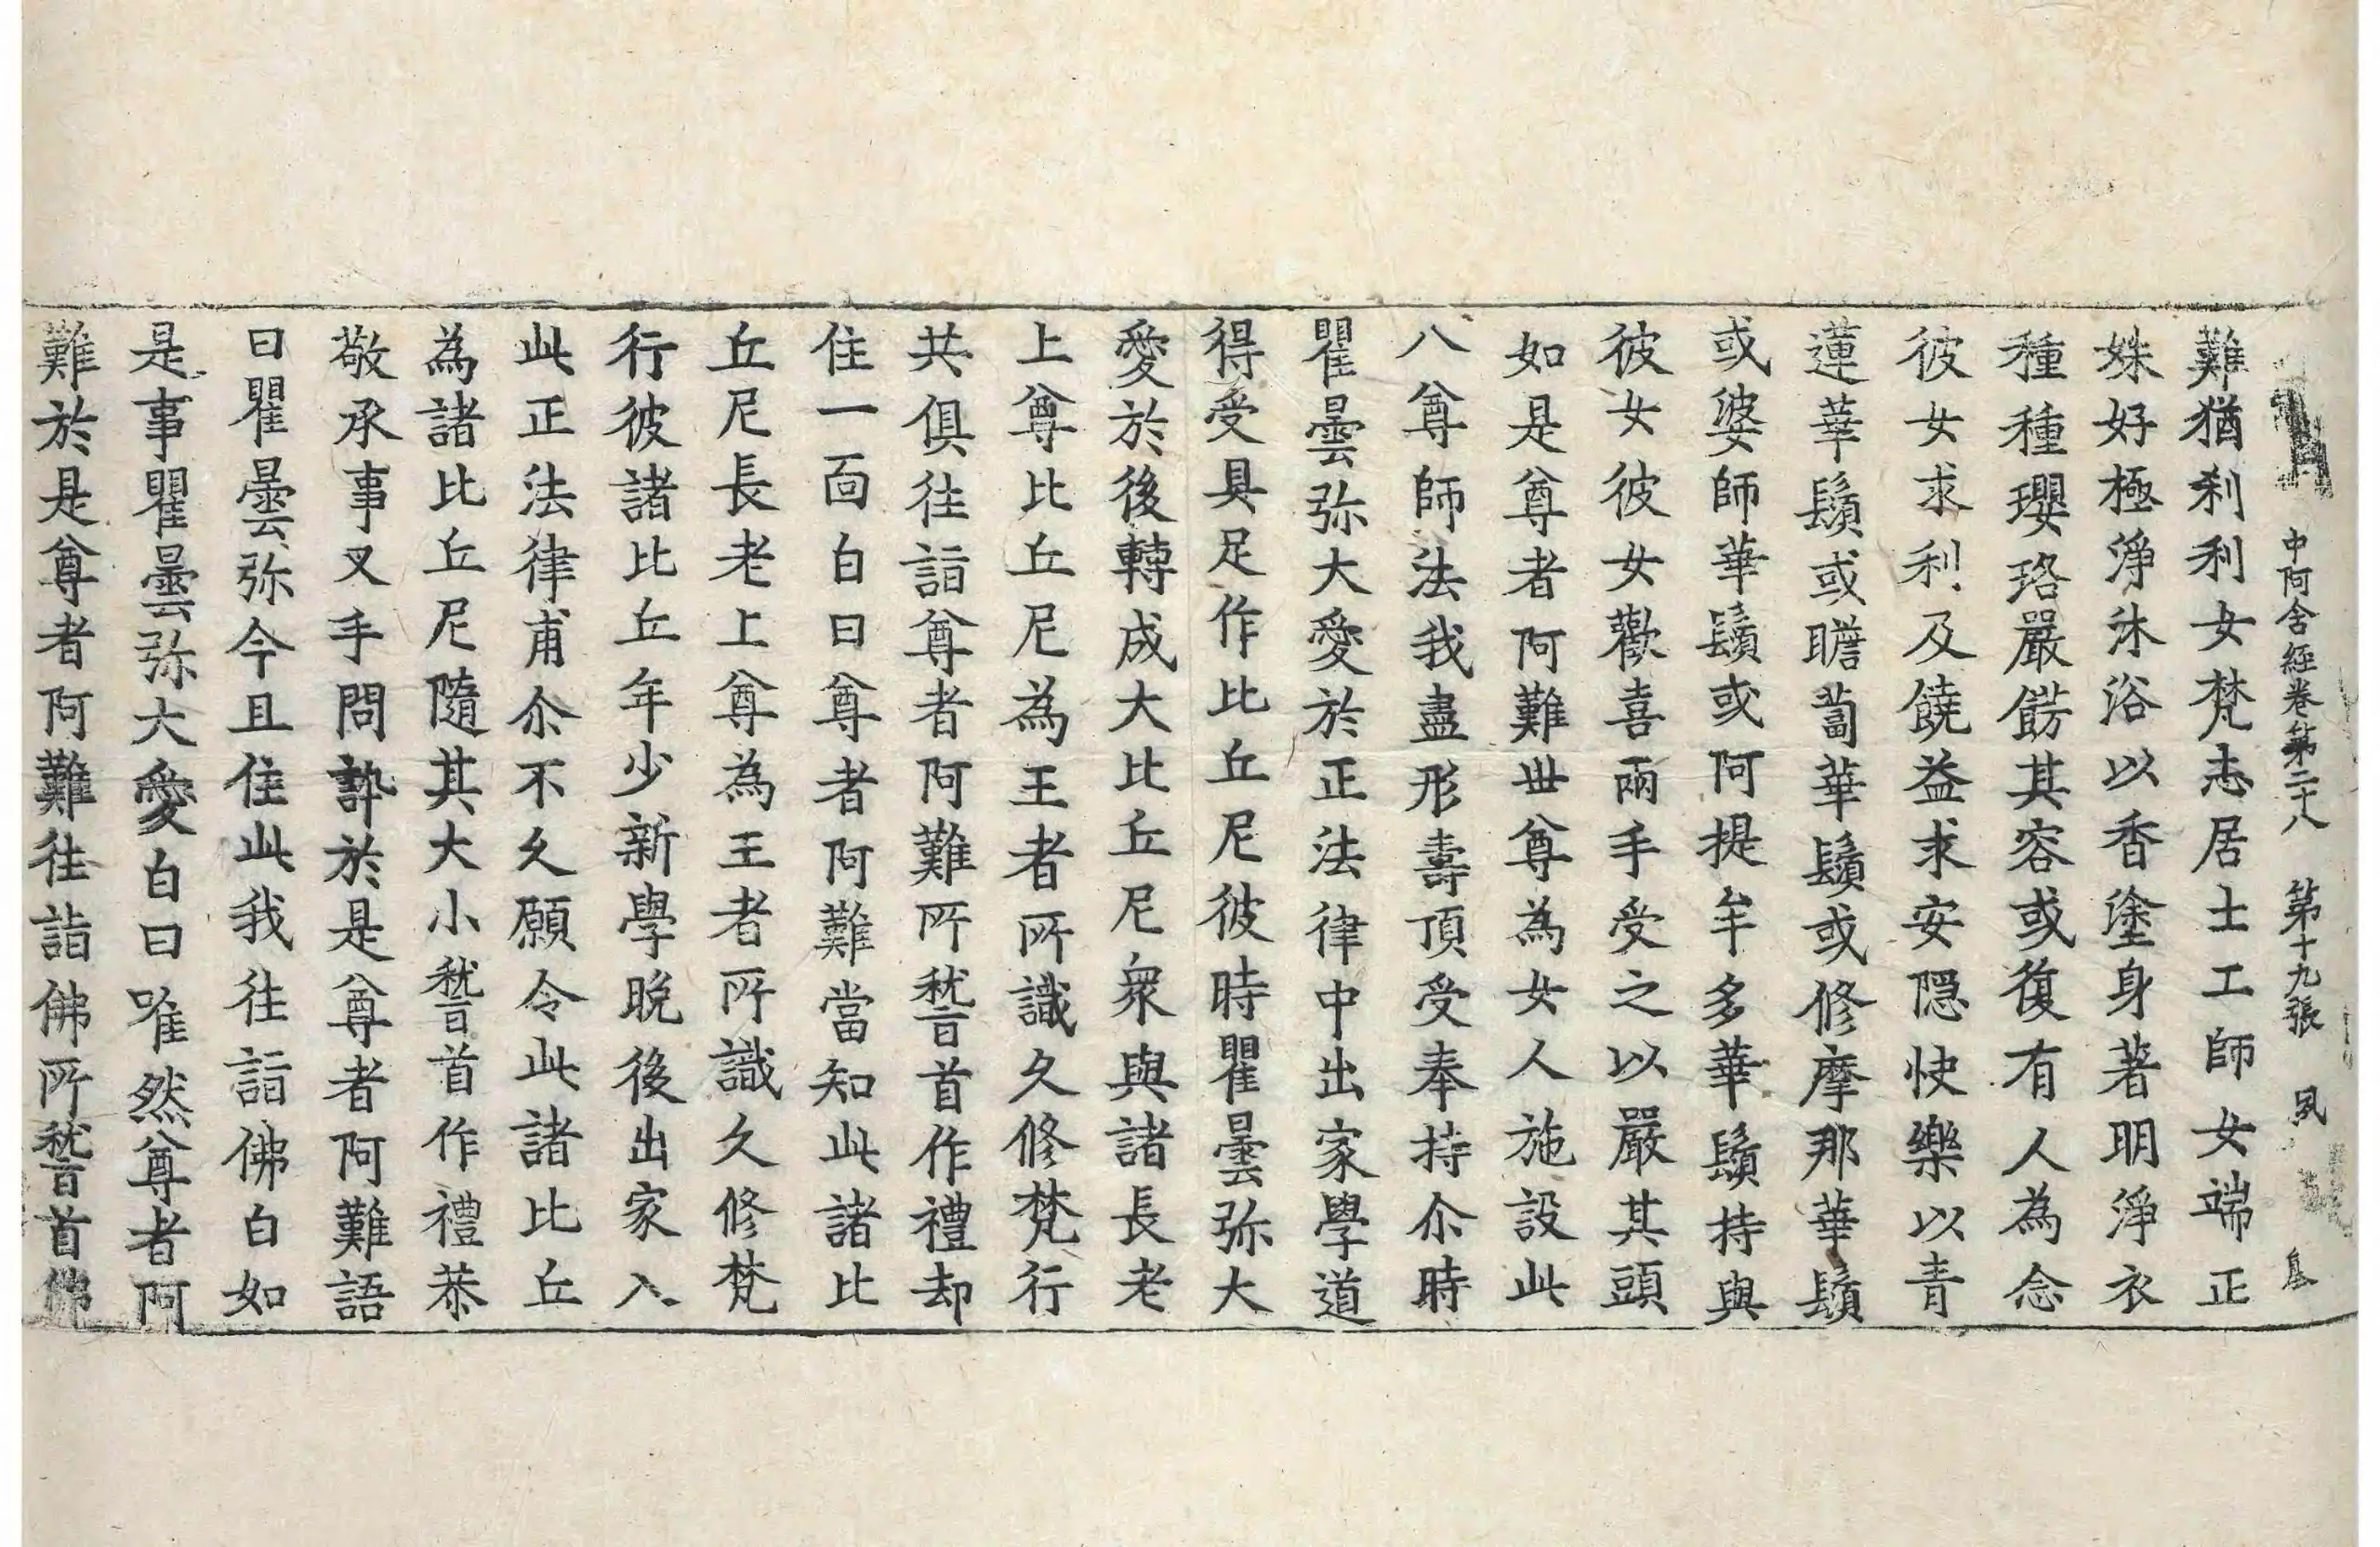 中阿含經卷第二十八　第十九張　夙
難猶刹利女梵志居士工師女端正
姝好極淨沐浴以香塗身著明淨衣
種種瓔珞嚴餝其容或復有人為念
彼女求利及饒益求安隱快樂以青
蓮華鬚或瞻蔔華鬚或修摩那華鬚
或婆師華鬚或阿提牟多華鬚持與
彼女彼女歡喜兩手受之以嚴其頭
如是尊者阿難世尊為女人施設此
八尊師法我盡形壽頂受奉持尒時
瞿曇弥大愛於正法律中出家學道
得受具足作比丘尼彼時瞿曇弥大
愛於後轉成大比丘尼衆與諸長老
上尊比丘尼為王者所識久修梵行
共俱往詣尊者阿難所嵆首作禮却
住一面白曰尊者阿難當知此諸比
丘尼長老上尊為王者所識久修梵
行彼諸比丘年少新學晚後出家入
此正法律甫尒不久願令此諸比丘
為諸比丘尼隨其大小嵆首作禮恭
敬承事叉手問訊於是尊者阿難語
曰瞿曇弥今且住此我往詣佛白如
是事瞿曇弥大愛白曰唯然尊者阿
難於是尊者阿難往詣佛所嵆首佛